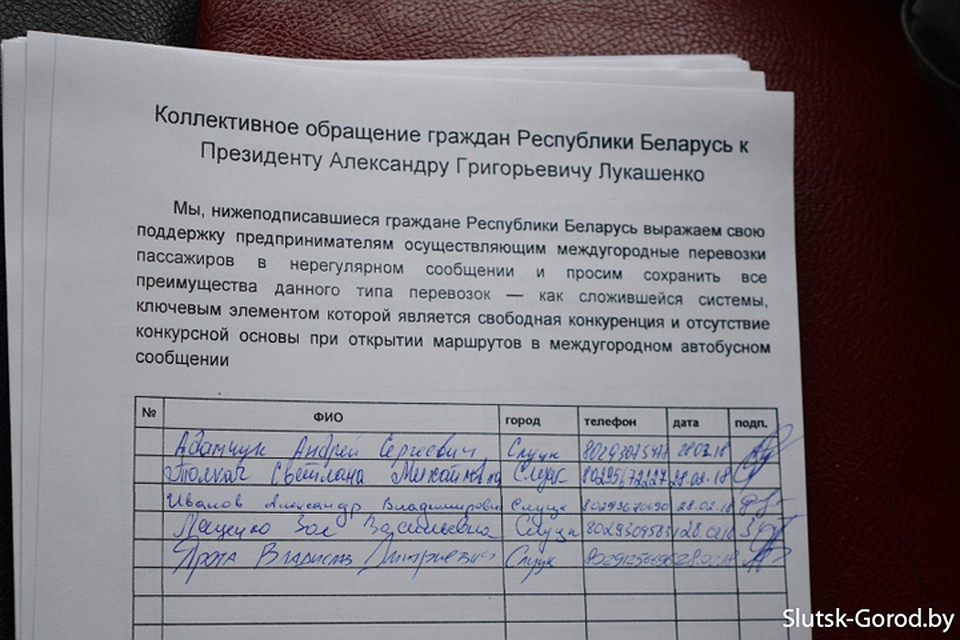 Коллективное обращение граждан Республики Беларусь к
Президенту Александру Григорьевичу Лукашенко
Мы, нижеподписавшиеся граждане Республики Беларусь выражаем свою
поддержку предпринимателям осуществляющим междугородные перевозки
пассажиров в нерегулярном сообщении и просим сохранить все
преимущества данного типа перевозок — как сложившейся системы,
ключевым элементом которой является свободная конкуренция и отсутствие
конкурсной основы при открытии маршрутов в междугородном автобусном
сообщении
№ ФИО город телефон дата подп.
Андрей Сергеевич Слуцк 28.02.18
Толкач Светлана Михайловна Слуцк 80295672227 28.02.18
Иванов Александр Владимирович Слуцк 28.02.18
Зоя Васильевна Слуцк
Владислав Дмитриевич Слуцк 28.02.18
Slutsk-Gorod.by